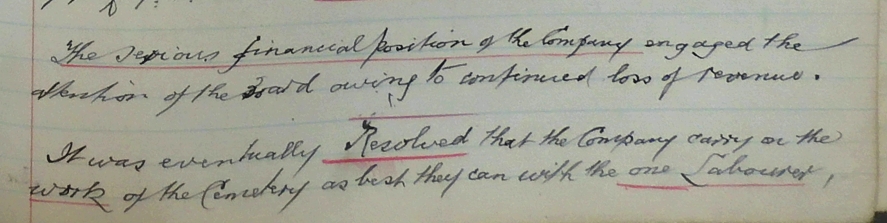 The serious financial position of the Company engaged the
attention of the Board owing to continued loss of revenue.
It was eventually Resolved that the Company carry on the
work of the Cemetery as best they can with the one Labourer,